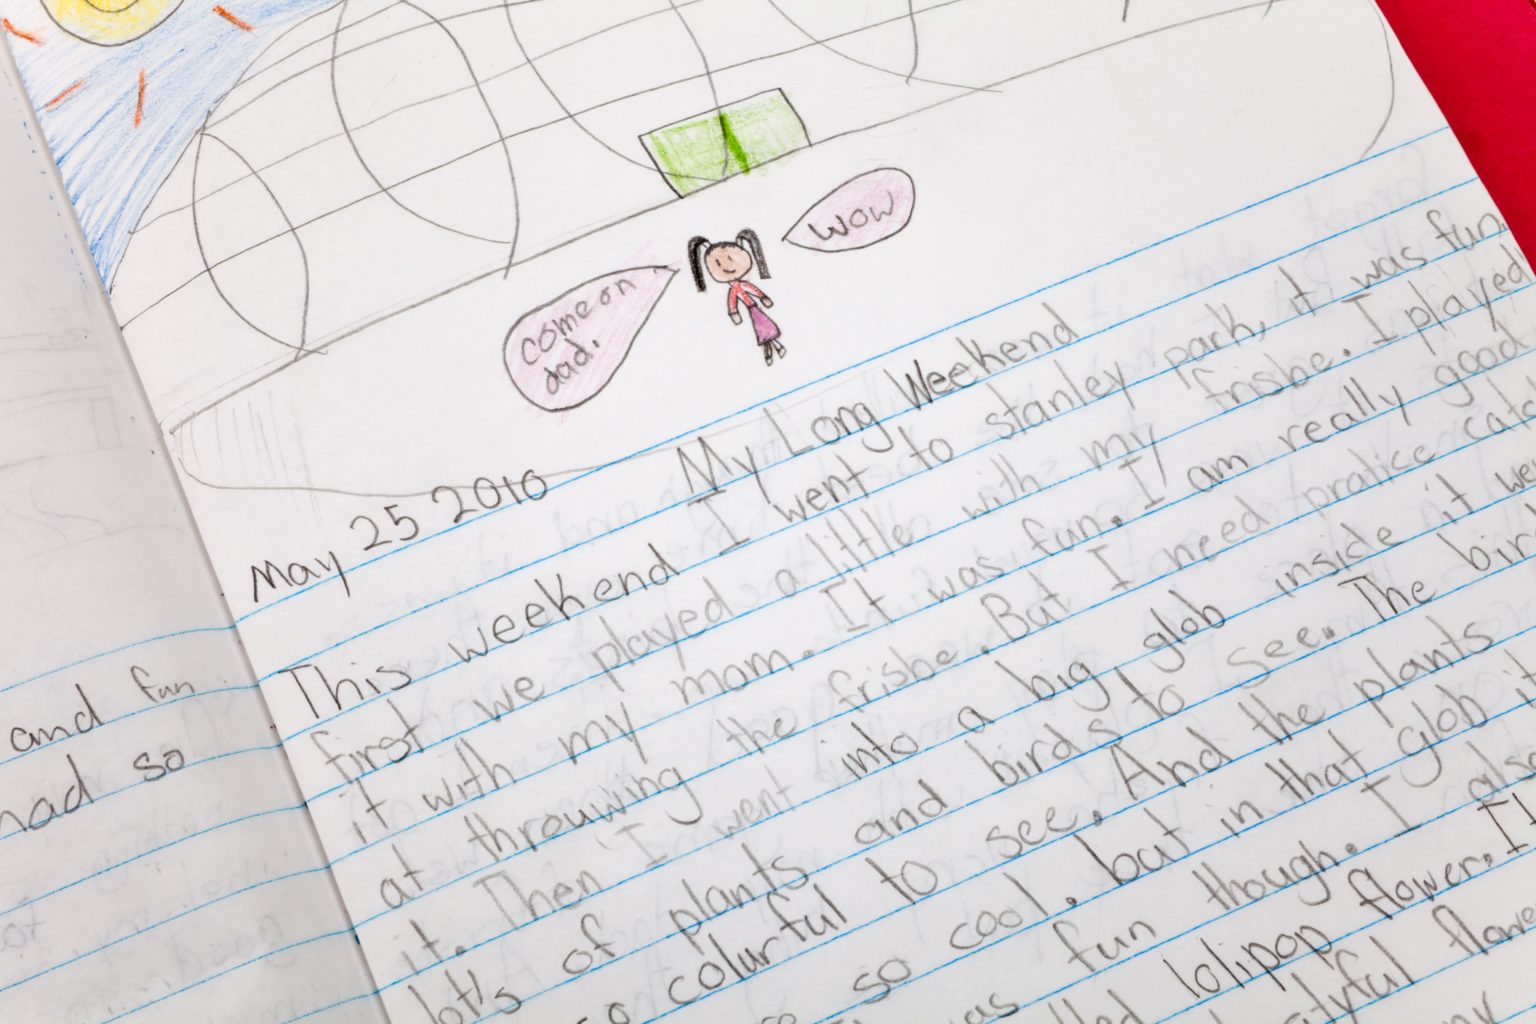 wow
come on
dad.
My Long Weekend
May 25 2010
This weekend I went to stanley park, it was fun.
first we played a little with my frisbe. I played
it with my mom. It was fun. I am really good
at throuwing the frisbe. But I need pratice
it. Then I went into a big glob inside it
lot's of plants and birds to see. The
so colurful to see. And the plants
so cool. but in that glob it
fun though. I also
lolipop flower. It
and fun
had so